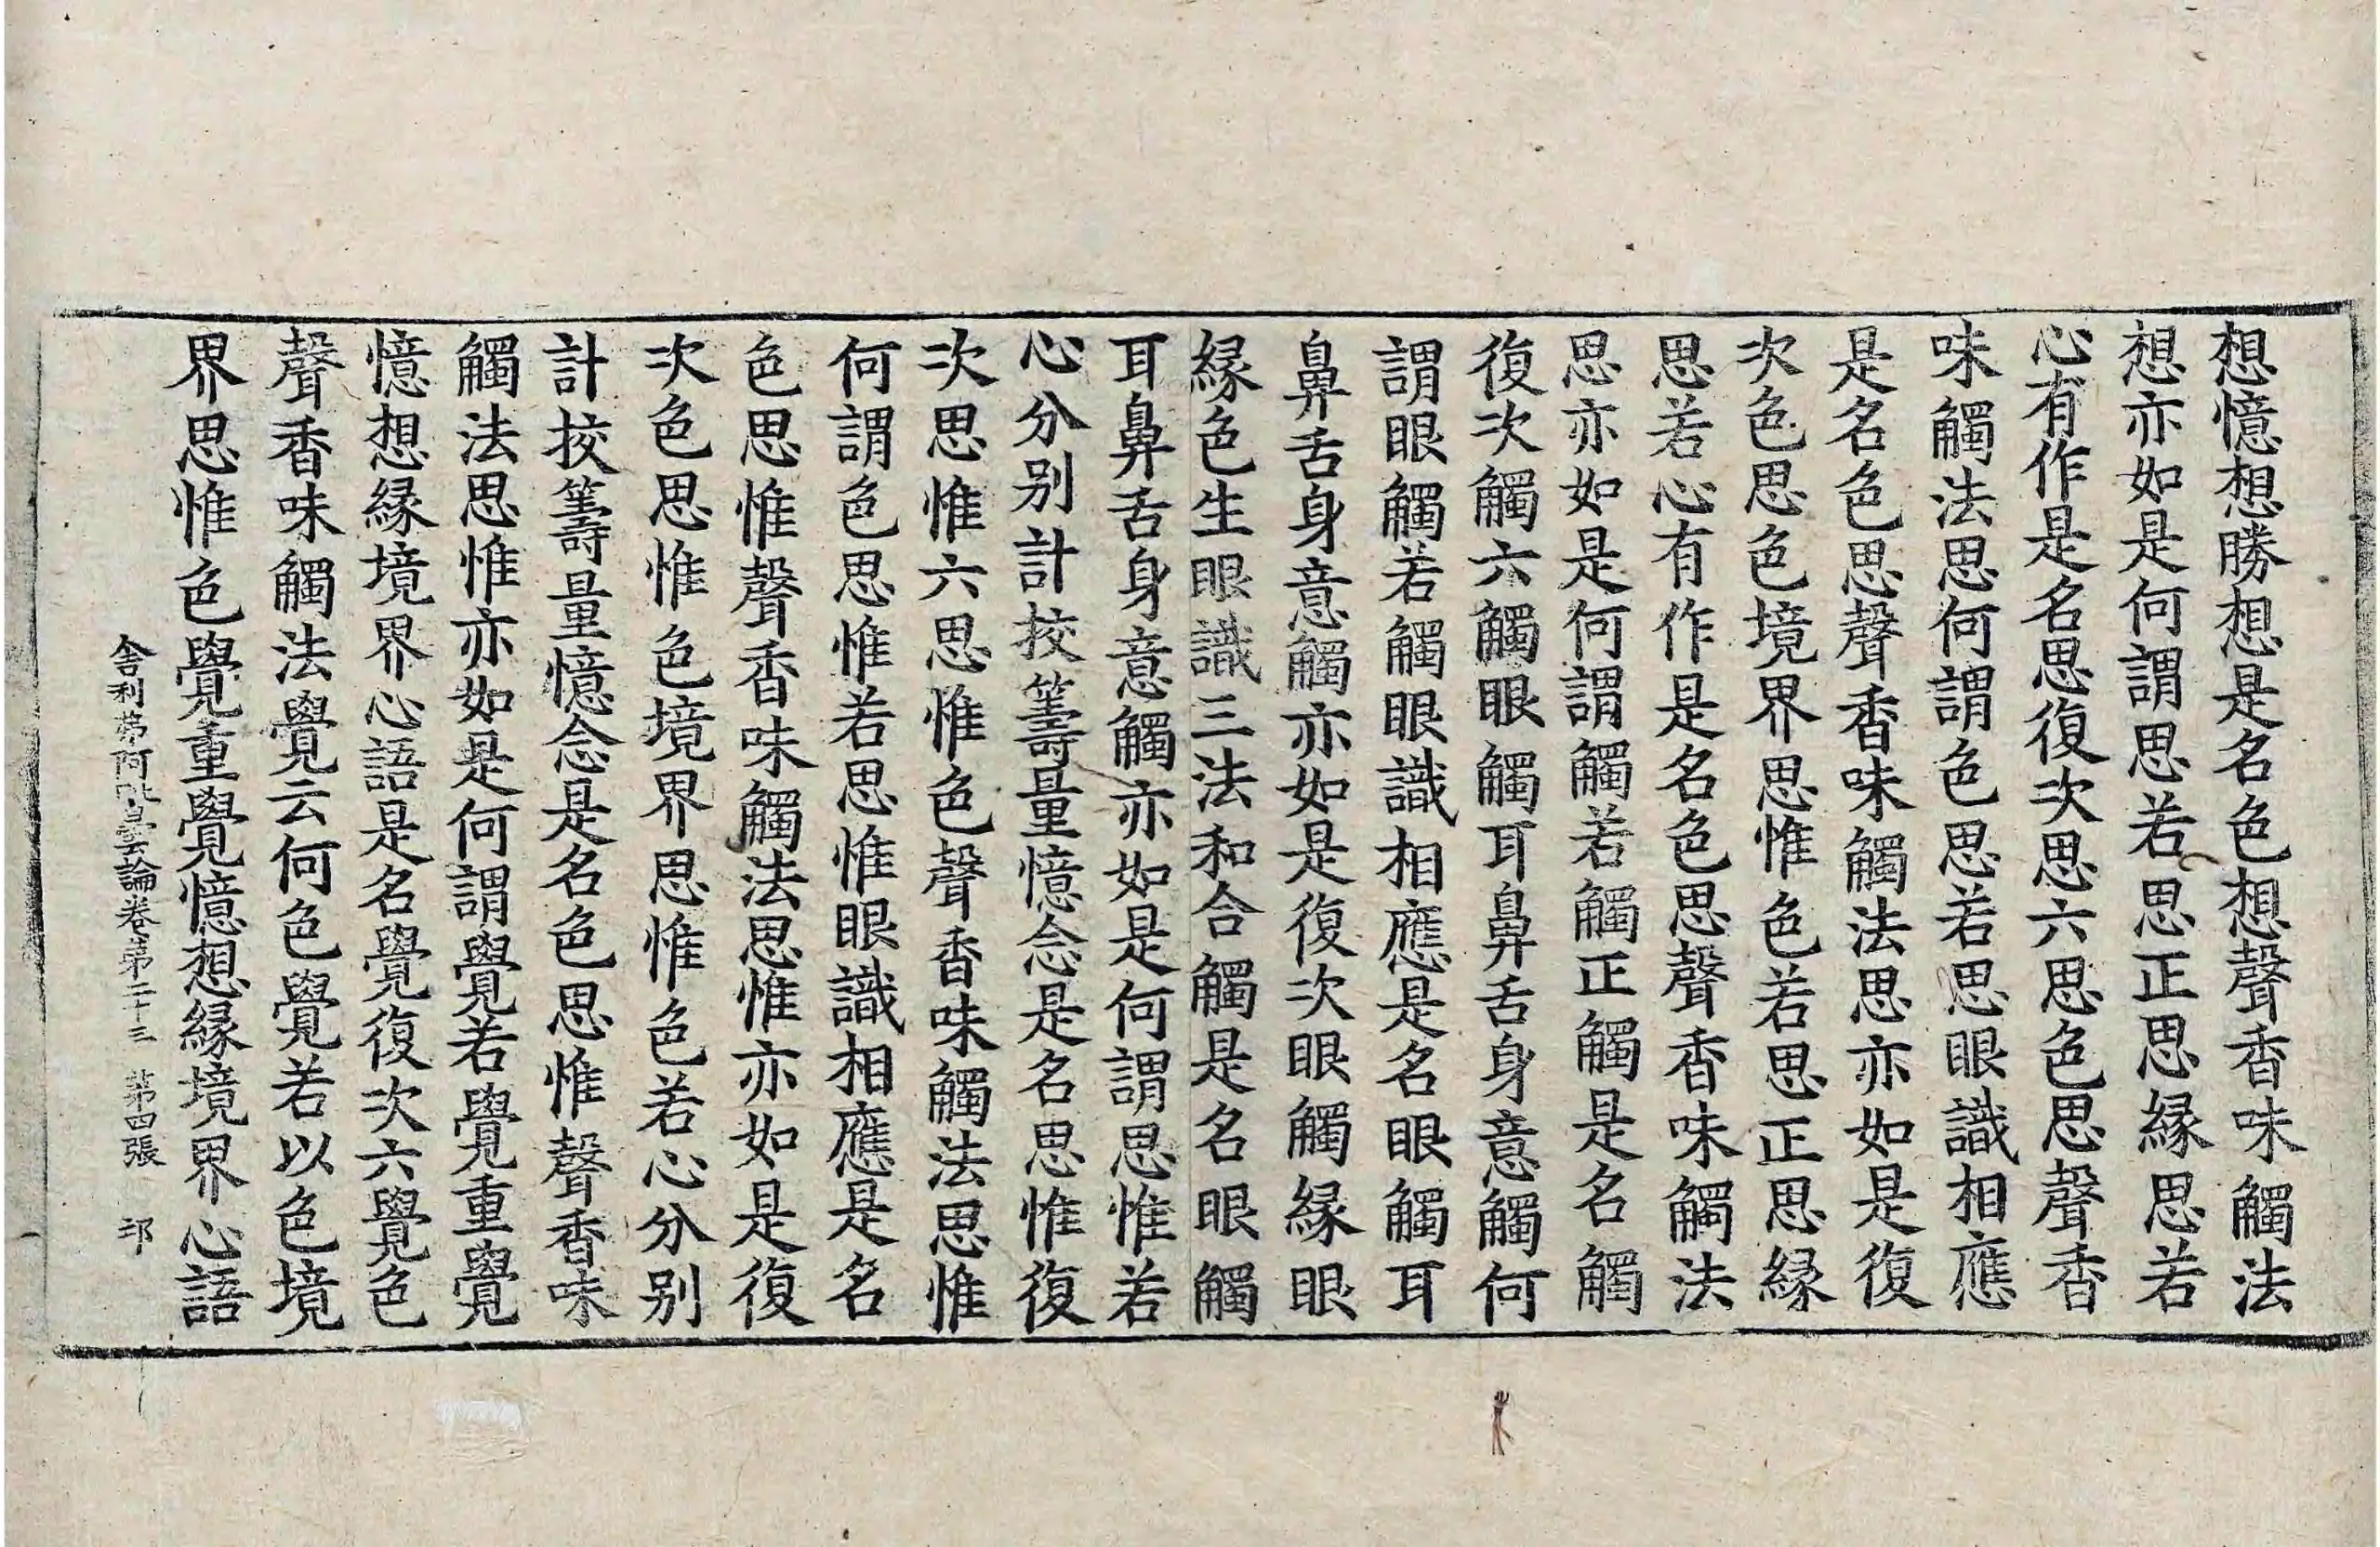 想憶想勝想是名色想聲香味觸法
想亦如是何謂思若思正思緣思若
心有作是名思復次思六思色思聲香
味觸法思何謂色思若思眼識相應
是名色思聲香味觸法思亦如是復
次色思色境界思惟色若思正思緣
思若心有作是名色思聲香味觸法
思亦如是何謂觸若觸正觸是名觸
復次觸六觸眼觸耳鼻舌身意觸何
謂眼觸若觸眼識相應是名眼觸耳
鼻舌身意觸亦如是復次眼觸緣眼
緣色生眼識三法和合觸是名眼觸
耳鼻舌身意觸亦如是何謂思惟若
心分别計挍籌量憶念是名思惟復
次思惟六思惟色聲香味觸法思惟
何謂色思惟若思惟眼識相應是名
色思惟聲香味觸法思惟亦如是復
次色思惟色境界思惟色若心分别
計挍籌量憶念是名色思惟聲香味
觸法思惟亦如是何謂覺若覺重覺
憶想緣境界心語是名覺復次六覺色
聲香味觸法覺云何色覺若以色境
界思惟色覺重覺憶想緣境界心語
舍利弗阿毗曇論卷第二十三 第四張 邛